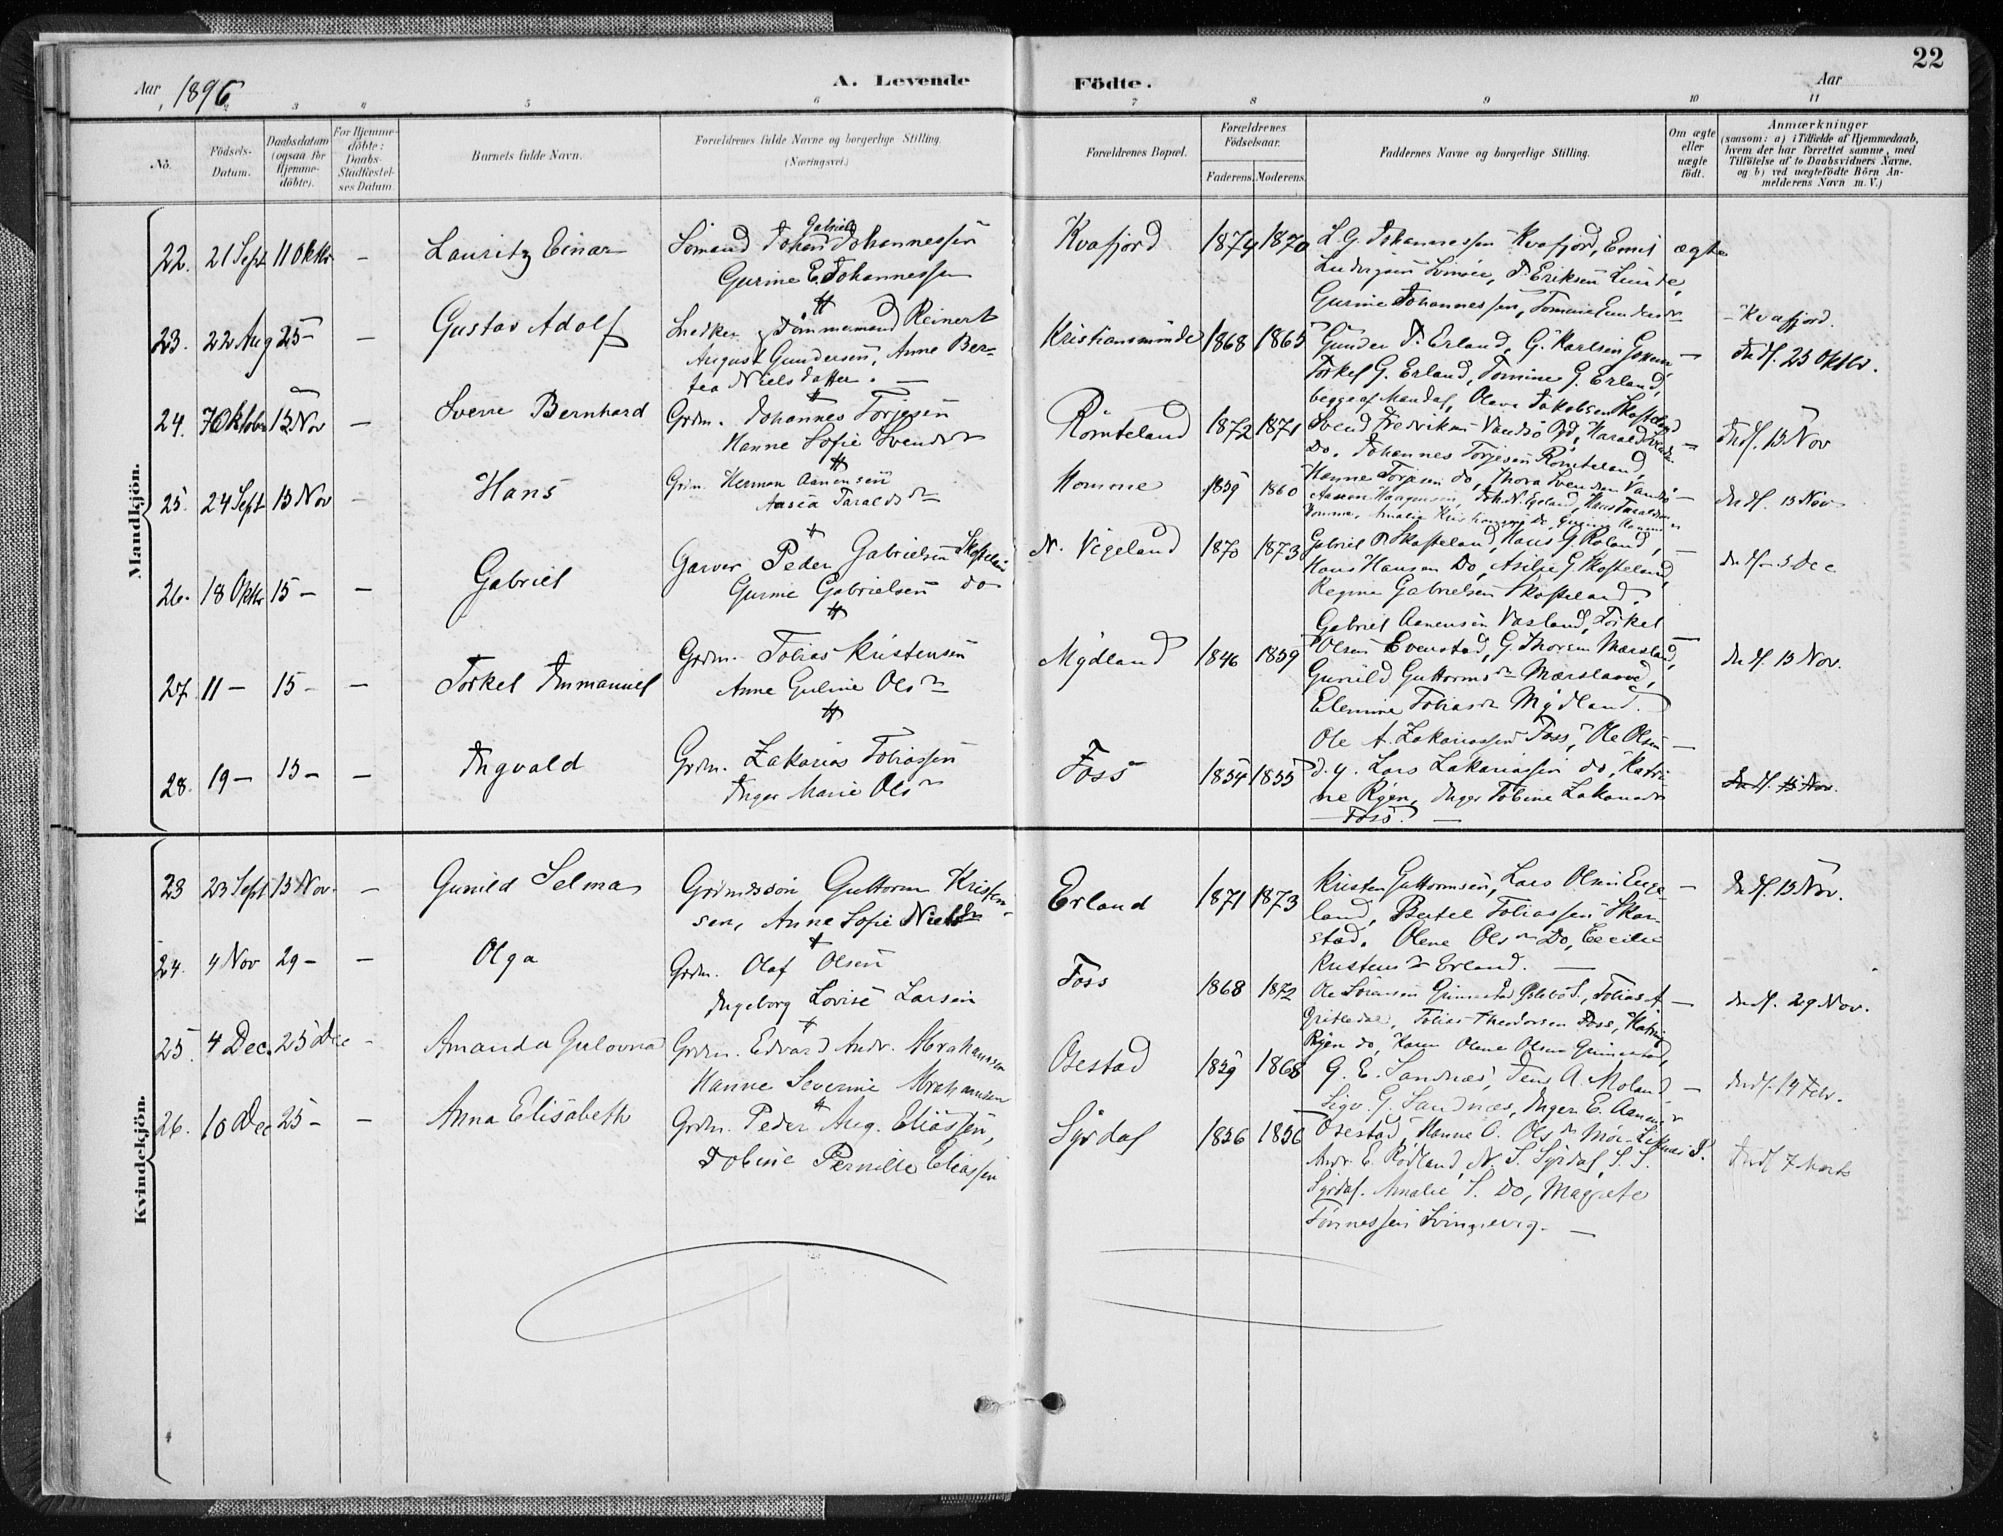 22
Aar 1896
A. Levende Födte.
Aar
3 4 5 6 7 8 9 10 11
No.
Födsels-Datum.
Daabsdatum (ogsaa for Hjemme-döbte).
For Hjemme-döbte: Daabs-Stadfæstel-ses Datum.
Barnets fulde Navn.
Forældrenes fulde Navne og borgerlige Stilling. (Næringsvei.)
Forældrenes Bopæl.
Forældrenes Födselsaar.
Faderens. Moderens.
Faddernes Navne og borgerlige Stilling.
Om ægte eller uægte födt.
Anmærkninger
(saasom: a) i Tilfælde af Hjemmedaab, hvem der har forrettet samme, med Tilföielse af to Daabsvidners Navne. og b) ved uægtefödte Börn An-melderens Navn m. V.)
Mandkjön.
22. 21 Sept 11 Oktbr – Lauritz Einar
Sömand Johan Gabriel Johannessen
Gurine E. Johannessen
Kvafjord 1874 1870
L. G. Johannessen Kvafjord, Emil
Ludvigsen Svinöer, T. Eriksen Lunde,
Gurine Johannessen,
ægte
– Kvafjord.
23. 22 Aug 25 – – Gustav Adolf
Snedker & Tömmermand Reinert
August Gundersen, Anne Ber-
tea Nielsdatter. –
Kristiansminde 1868 1865
Gunder T. Erland, G. Karlsen
Torkel G. Erland, Tomine G. Erland,
begge af Mandal, Olava Jakobsen Skofteland
–
Indf. 25 Oktbr.
24. 7 Oktober 15 Nov – Sverre Bernhard
Grdm. Johannes Torjesen
Hanne Sofie Svendsdr
Römteland 1872 1871
Svend Fredriksen Vandsö
Do. Johannes Torjesen Römteland,
Hanne Torjesen do, Thora Svendsen Vandsö
–
Indf. 15 Nov
25. 24 Sept 15 Nov – Hans
Grdm. Herman Aanensen
Aasea Taraldsdr
Homme 1859 1860
–
Indf. 15 Nov
26. 18 Oktbr 15 – – Gabriel
Garver Peder Gabrielsen Skofteland
Gurine Gabrielsen do
N. Vigeland 1870 1873
Gabriel P. Skofteland, Hans G. Roland,
Hans Hansen Do, Asilje G. Skofteland,
Regine Gabrielsen Skofteland.
–
Indf. 5 Dec
27. 11 – 15 – – Torkel Immanuel
Grdm. Tobias Kristensen
Anne Guline Olsdr
Mydland 1846 1859
Gabriel Aanensen Vasland, Torkel
Olsen Evenstad, G. Thorsen Mærsland,
Gunild Guttormsdr Mærsland,
Elenine Tobiasdr Mydland.
–
Indf. 15 Nov.
28. 19 – 15 – – Ingvald
Grdm. Zakarias Tobiassen
Inger Marie Olsdr
Foss 1854 1855
Ole A. Zakariassen Foss, Ole Olsen
d. y. Lars Zakariassen do, Katri-
ne Rÿen, Inger Tobine Zakariasdr
– Foss. –
–
Indf. 15 Nov.
Kvindekjön.
23 23 Sept 15 Nov – Gunild Selma
Grdmdssön Guttorm Kristen-
sen, Anne Sofie Nielsdr
Erland 1871 1873
Kristen Guttormsen, Lars Olsen Ege-
land, Bertel Tobiassen Skar-
stad. Olene Olsdr Do, Cecilie
Kristensdr Erland. –
–
Indf. 15 Nov.
24. 4 Nov 29 – – Olga
Grdm. Olaf Olsen
Ingeborg Lovise Larsen
Foss 1868 1872
Ole Sörensen Grimestad, Tobias A.
Tobias Theodorsen Foss, Katrine
Rÿen do, Karen Olene Olsen
–
Indf. 29 Nov.
25. 4 Dec. 25 Dec – Amanda Gulovna
Grdm. Edvard Andr. Abrahamsen
Hanne Severine Abrahamsen
Osestad 1859 1868
G. E. Sandnæs, Tens A. Moland,
Sigv. G. Sandnæs, Inger E. Aanensdr
Osestad, Hanne O. Olsdr
–
Indf. 14 Febr.
26. 10 Dec 25 – – Anna Elisabeth
Grdm. Peder Aug. Eliassen,
Tobine Pernille Eliassen
Syrdal 1856 1856
Andr. E. Rödland, N. S. Syrdal, S. S.
Syrdal. Amalie S. Do, Magrete
Tönnessen Svinevig. –
Indf 7 Marts